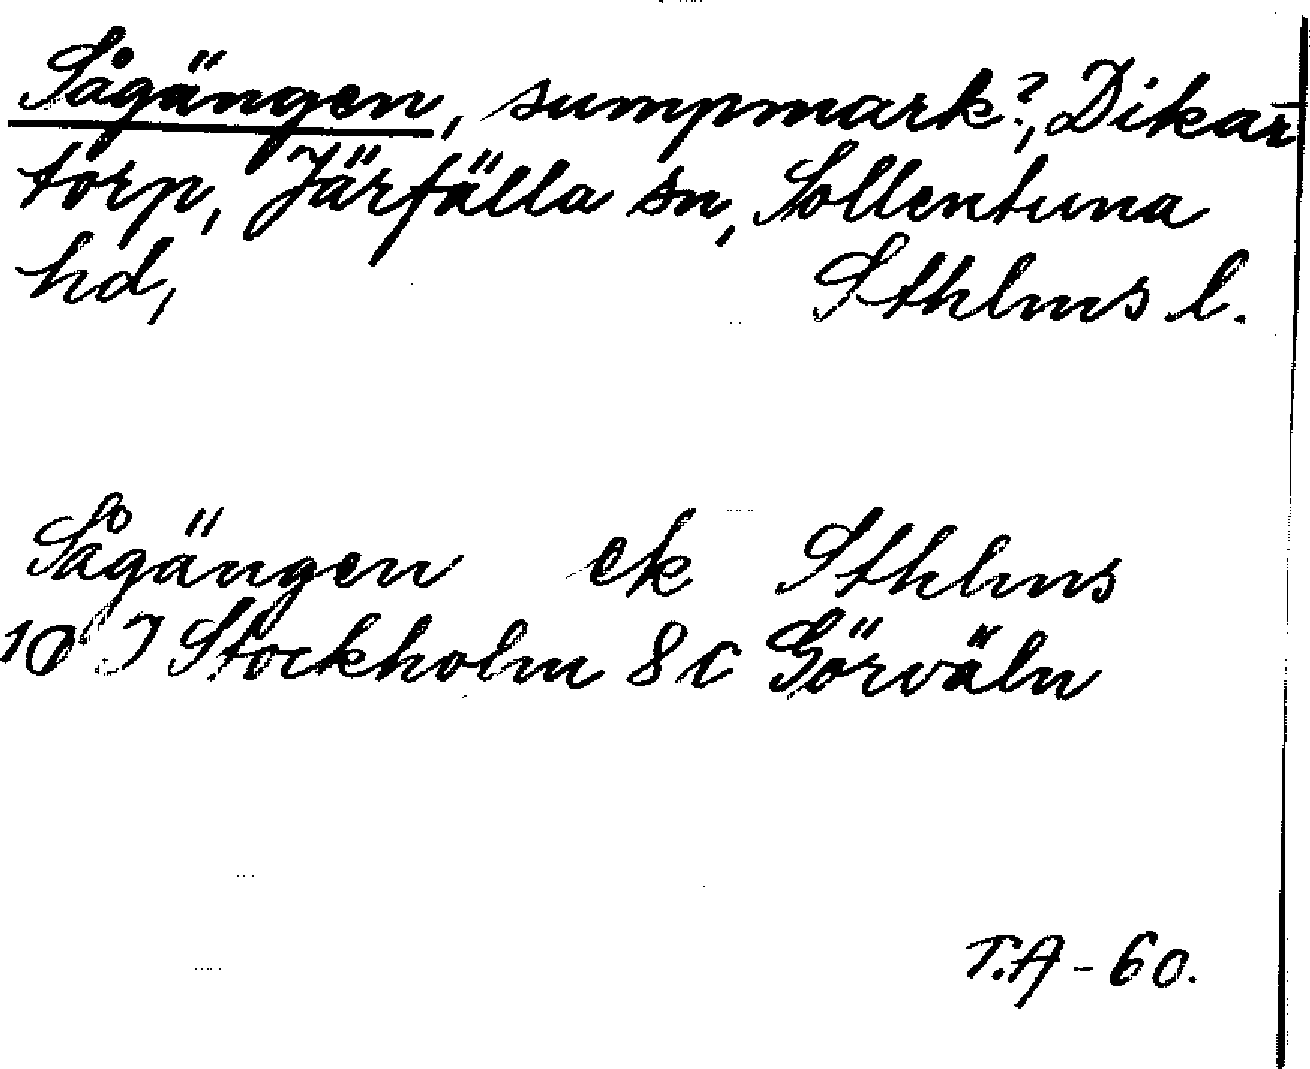 Sågängen, sumpmark?, Dikar-
torp, Järfälla sn, Sollentuna
hd, Sthlms l.
Sågängen ek Sthlms
10 I Stockholm 8 c Görväln
T.A - 60.